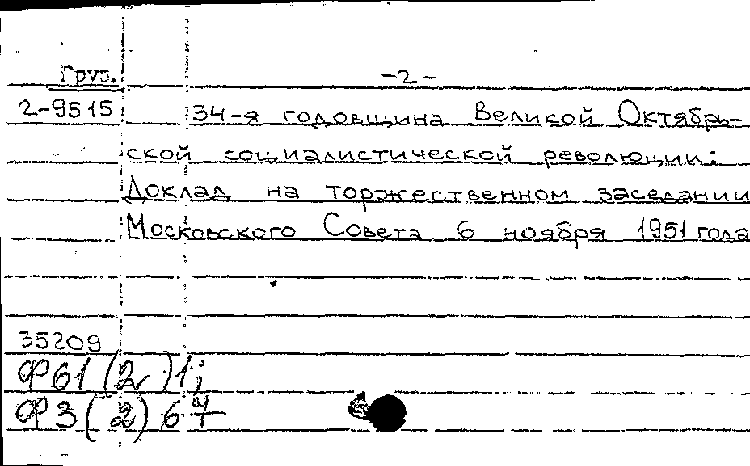 Груз. -2-
2-9515 34-я годовщина Великой Октябрь-
ской социалистической революции:
Доклад на торжественном заседании
Московского Совета 6 ноября 1951 года
35209
Ф61(2)1;
Ф3(2)67